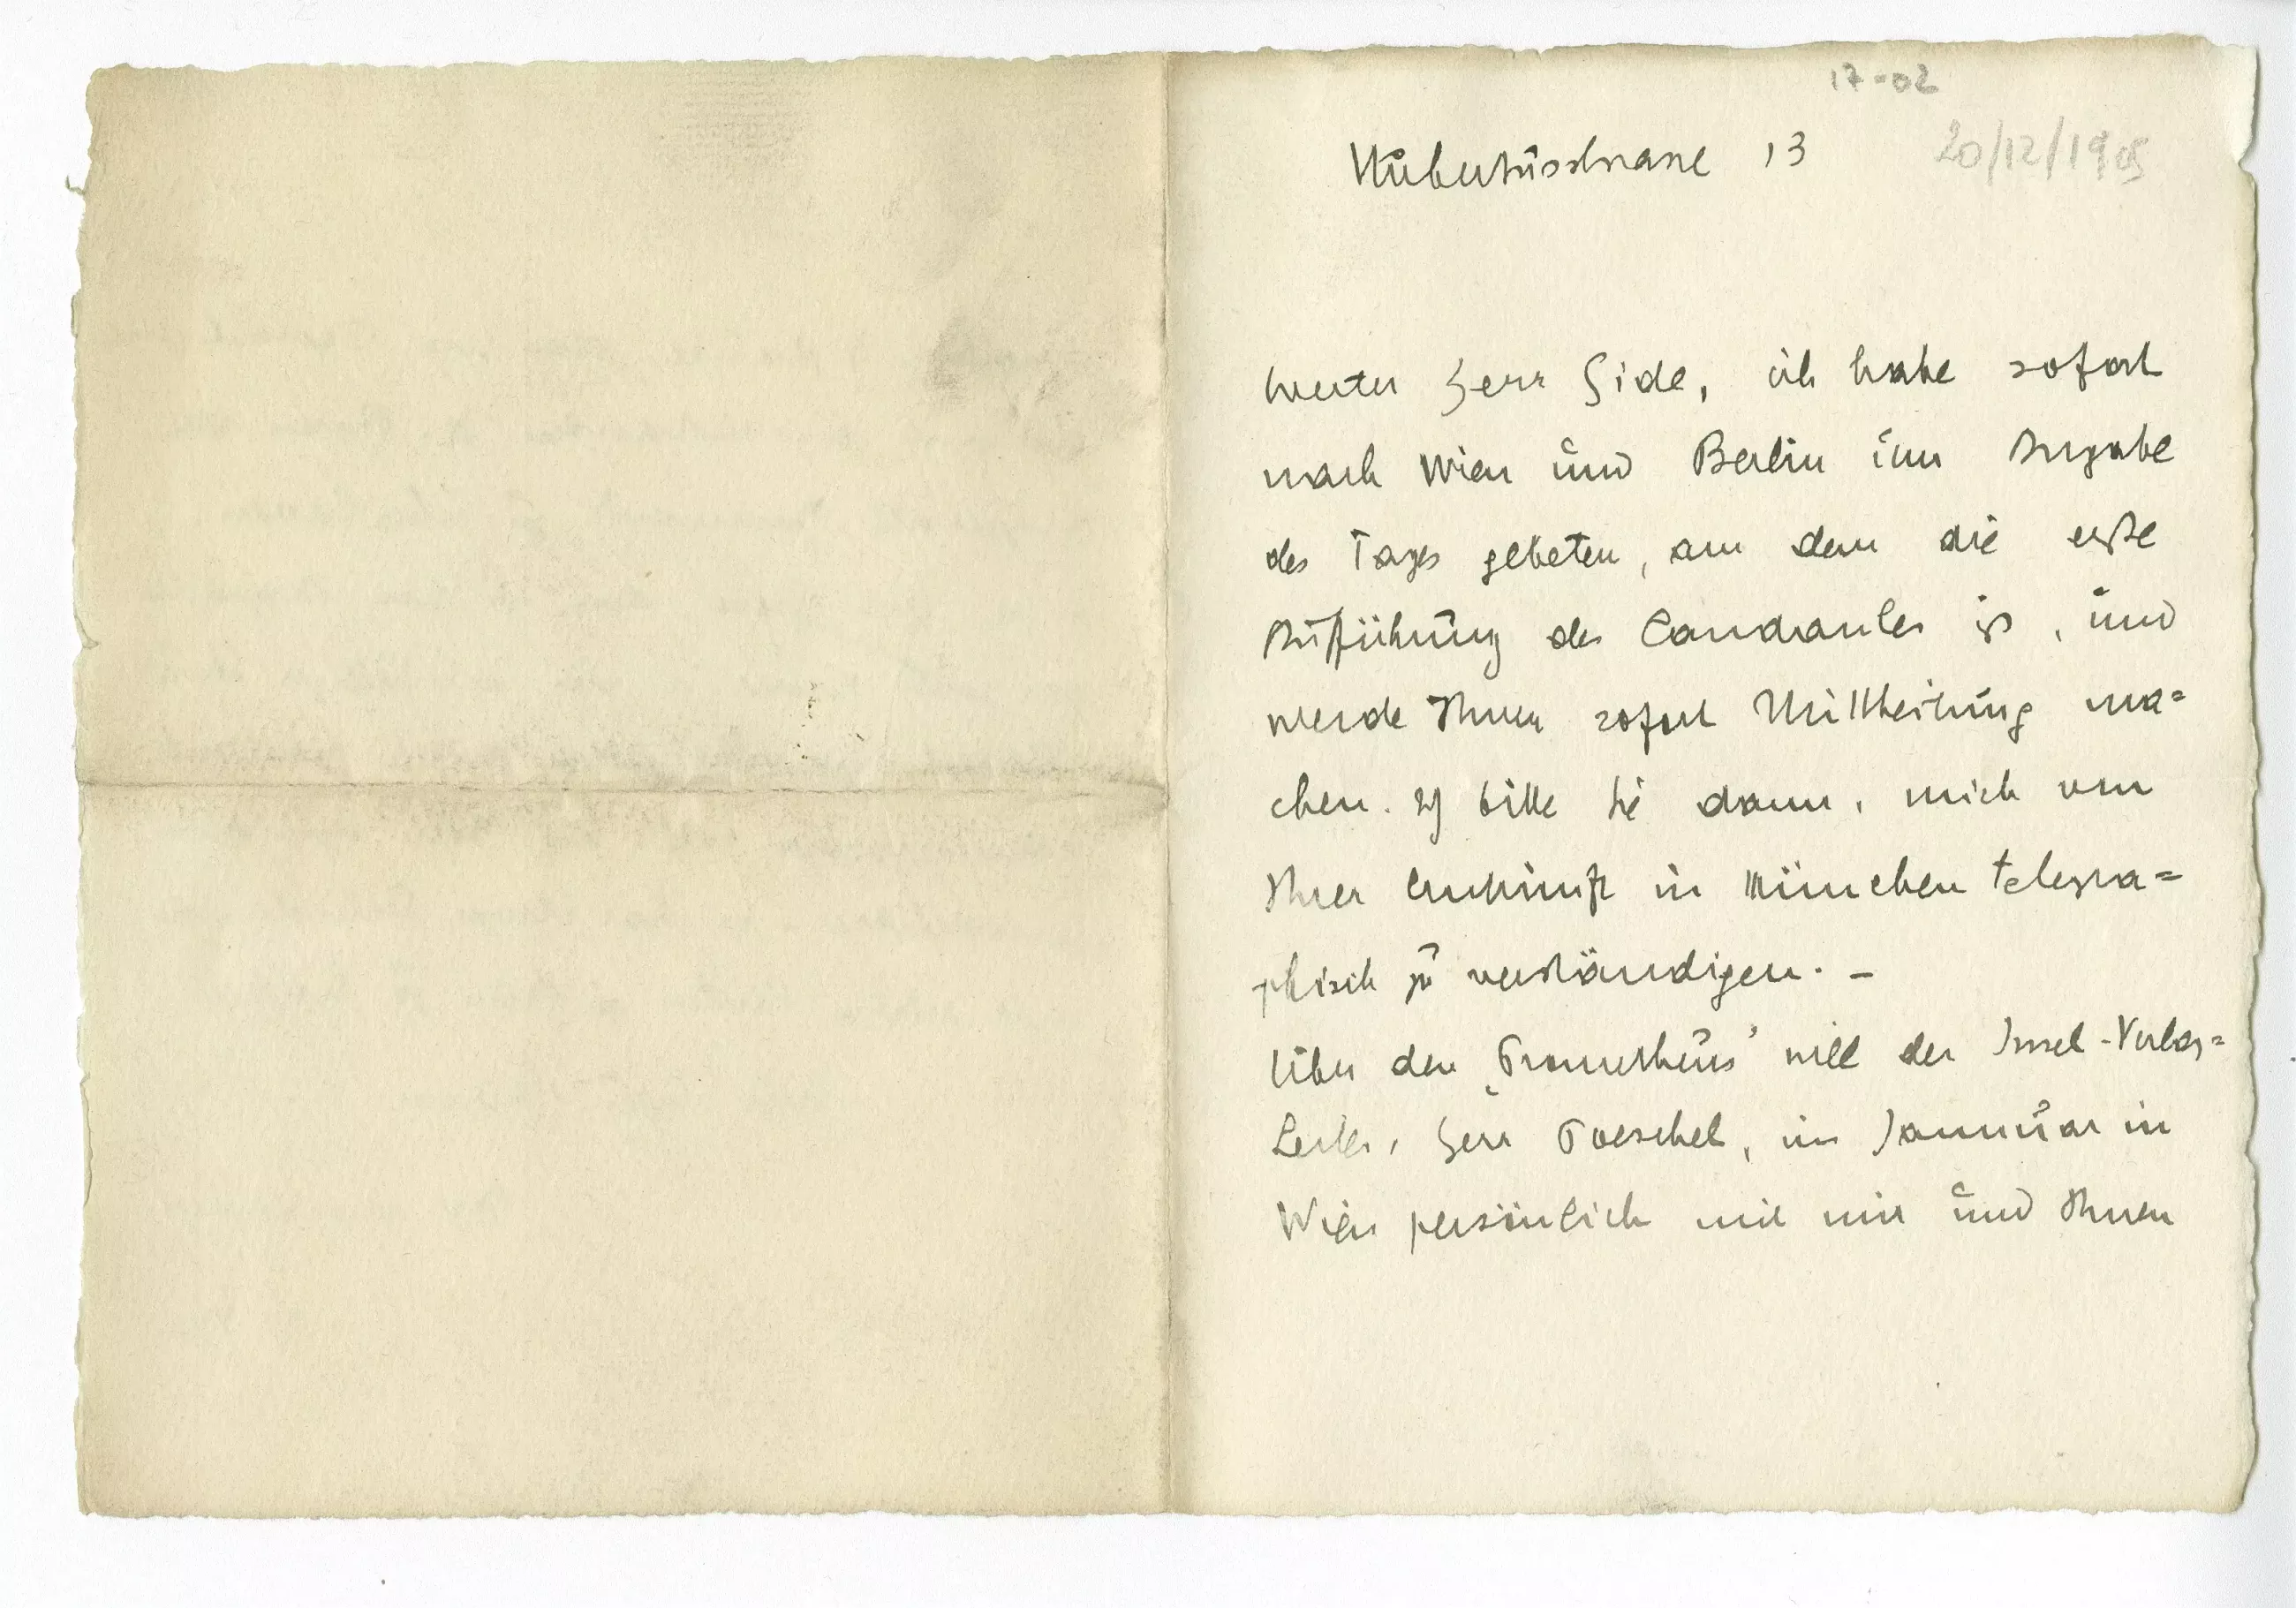 17-02
20/12/1905
Hubertusstrasse 13
Werter Herr Gide, ich habe sofort
nach Wien und Berlin um Angabe
des Tages gebeten, an dem die erste
Aufführung des Candaules ist, und
werde Ihnen sofort Mittheilung ma=
chen. Ich bitte Sie dann, mich von
Ihrer Ankunft in München telegra=
phisch zu verständigen. –
Über den „Prometheus" will der Insel-Verlag=
Leiter, Herr Poeschel, im Januar in
Wien persönlich mit mir und Ihnen